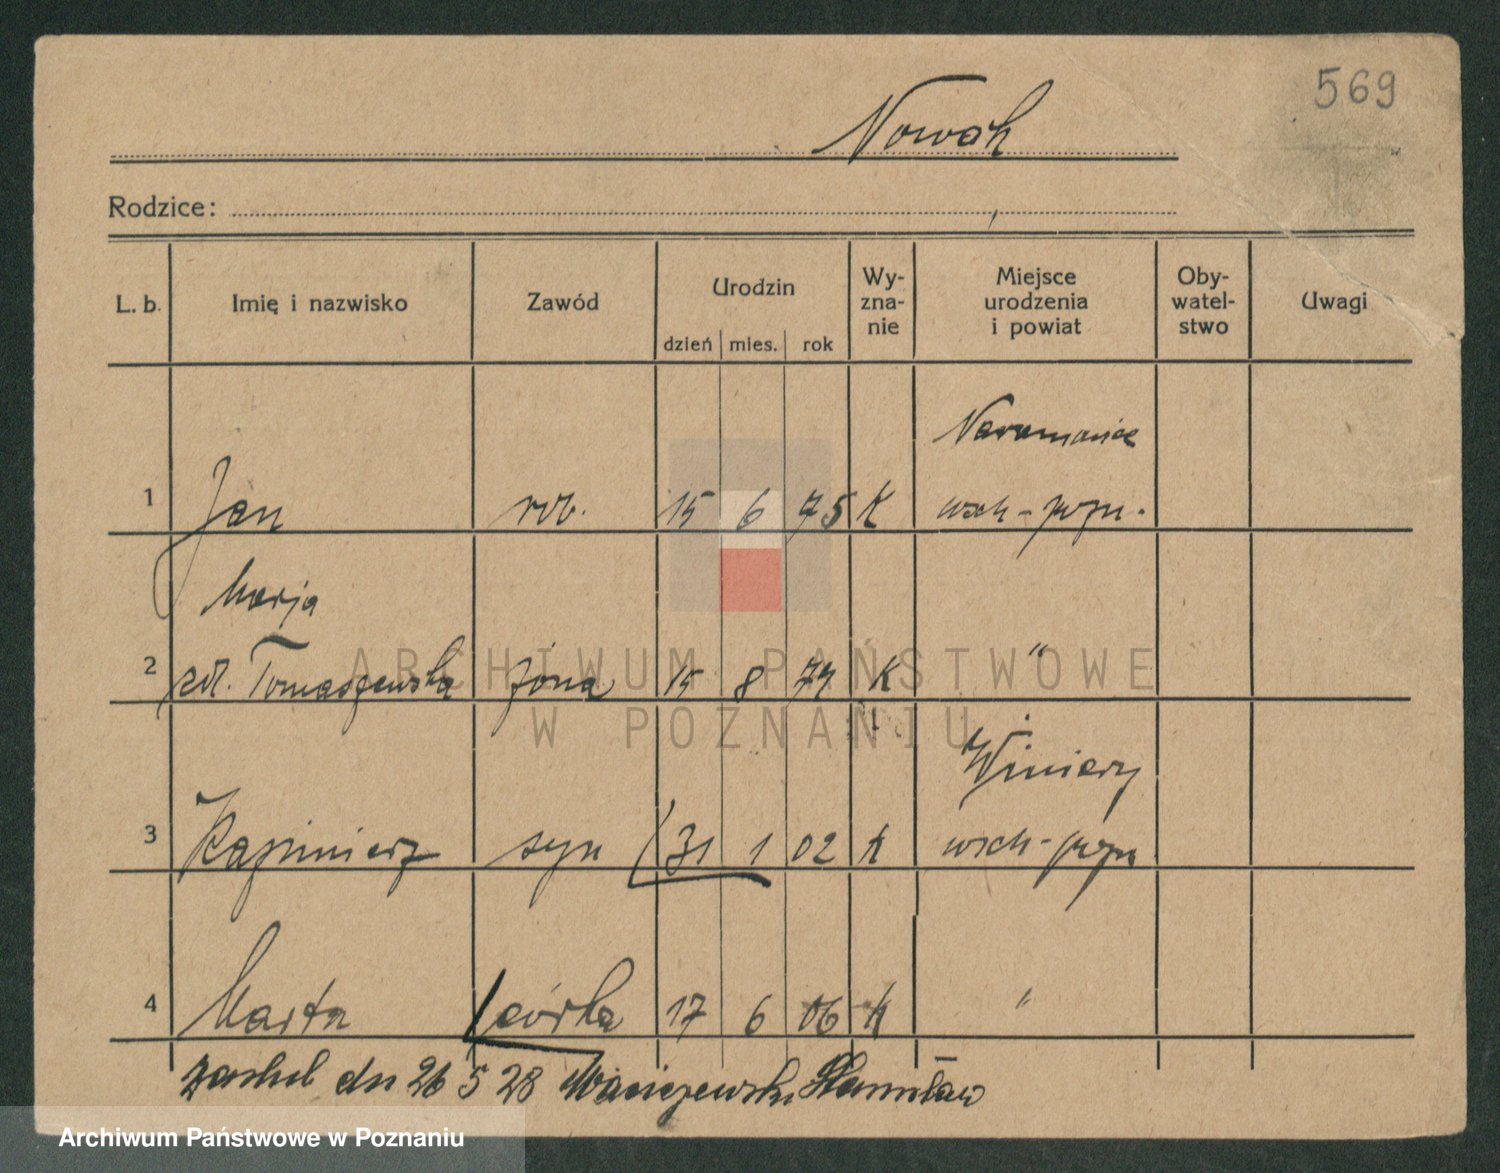 569
Nowak
Rodzice:
L. b. Imię i nazwisko Zawód Urodzin dzień mies. rok Wy-zna-nie Miejsce urodzenia i powiat Oby-watel-stwo Uwagi
Naramowice
1 Jan rob. 15 6 75 K wsch-pozn.
Marja
2 zd. Tomaszewska żona 15 8 74 K "
Winiary
3 Kazimierz syn 31 1 02 K wsch-pozn
4 Marta córka 17 6 06 K "
dn 26 5 28 Maciejewski Stanisław
ARCHIWUM PAŃSTWOWE
W POZNANIU
Archiwum Państwowe w Poznaniu